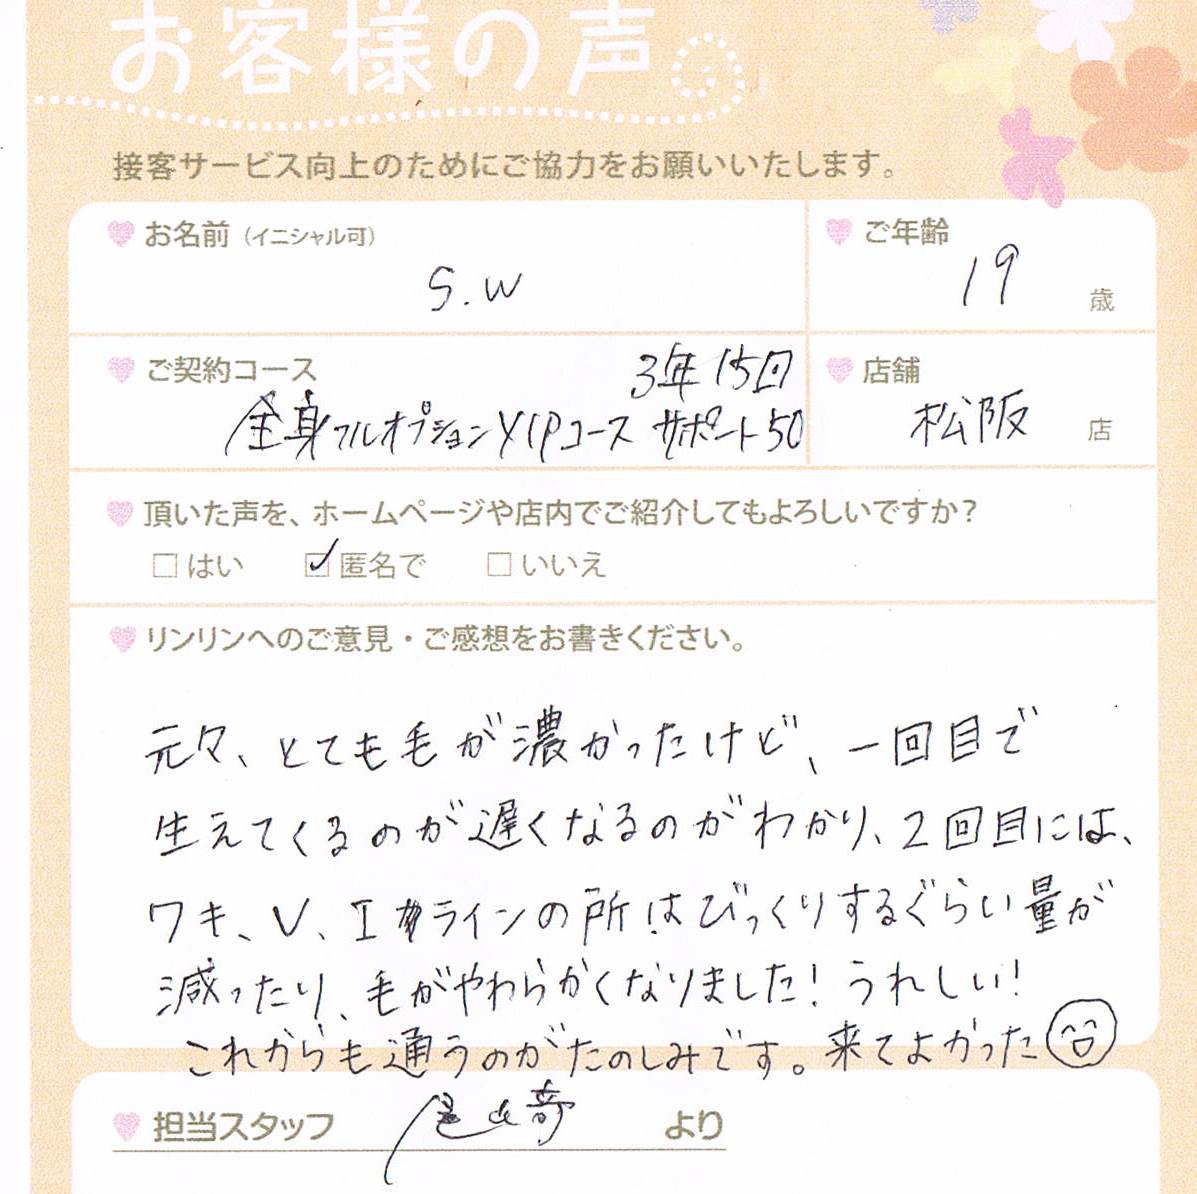 お客様の声
接客サービス向上のためにご協力をお願いいたします。
お名前（イニシャル可）
S.W
ご年齢
19 歳
ご契約コース
3年15回
全身フルオプションVIPコース サポート50
店舗
松阪 店
頂いた声を、ホームページや店内でご紹介してもよろしいですか？
はい 匿名で いいえ
リンリンへのご意見・ご感想をお書きください。
元々、とても毛が濃かったけど、一回目で
生えてくるのが遅くなるのがわかり、2回目には、
ワキ、V、Iラインの所はびっくりするぐらい量が
減ったり、毛がやわらかくなりました！うれしい！
これからも通うのがたのしみです。来てよかった
担当スタッフ より